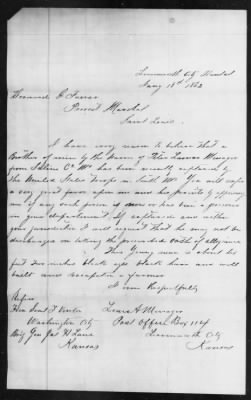 Leavenworth City Kansas
Jany 18th 1862
Bernard G Farrar
Provost Marshal
Saint Louis
I have every reason to believe that a
Brother of mine by the Name of Peter Lucas
from Salem C. Mo has been recently captured by
the United States Troops in that Mo. You will confer
a very great favor upon me and his friends by offering
me if any such person is now or has been a prisoner
in your department. If captured and within
your jurisdiction I will request that he may not be
discharged on taking the prescribed oath of allegiance
This Young man is about six
feet two inches black eyes black hair and well
built and occupation a farmer
I am Respectfully
Refers
Hon Saml C
Washington City
Brig Gen Jas H Lane
Kansas
Lewis A
Post Office Box 114
Leavenworth City
Kansas